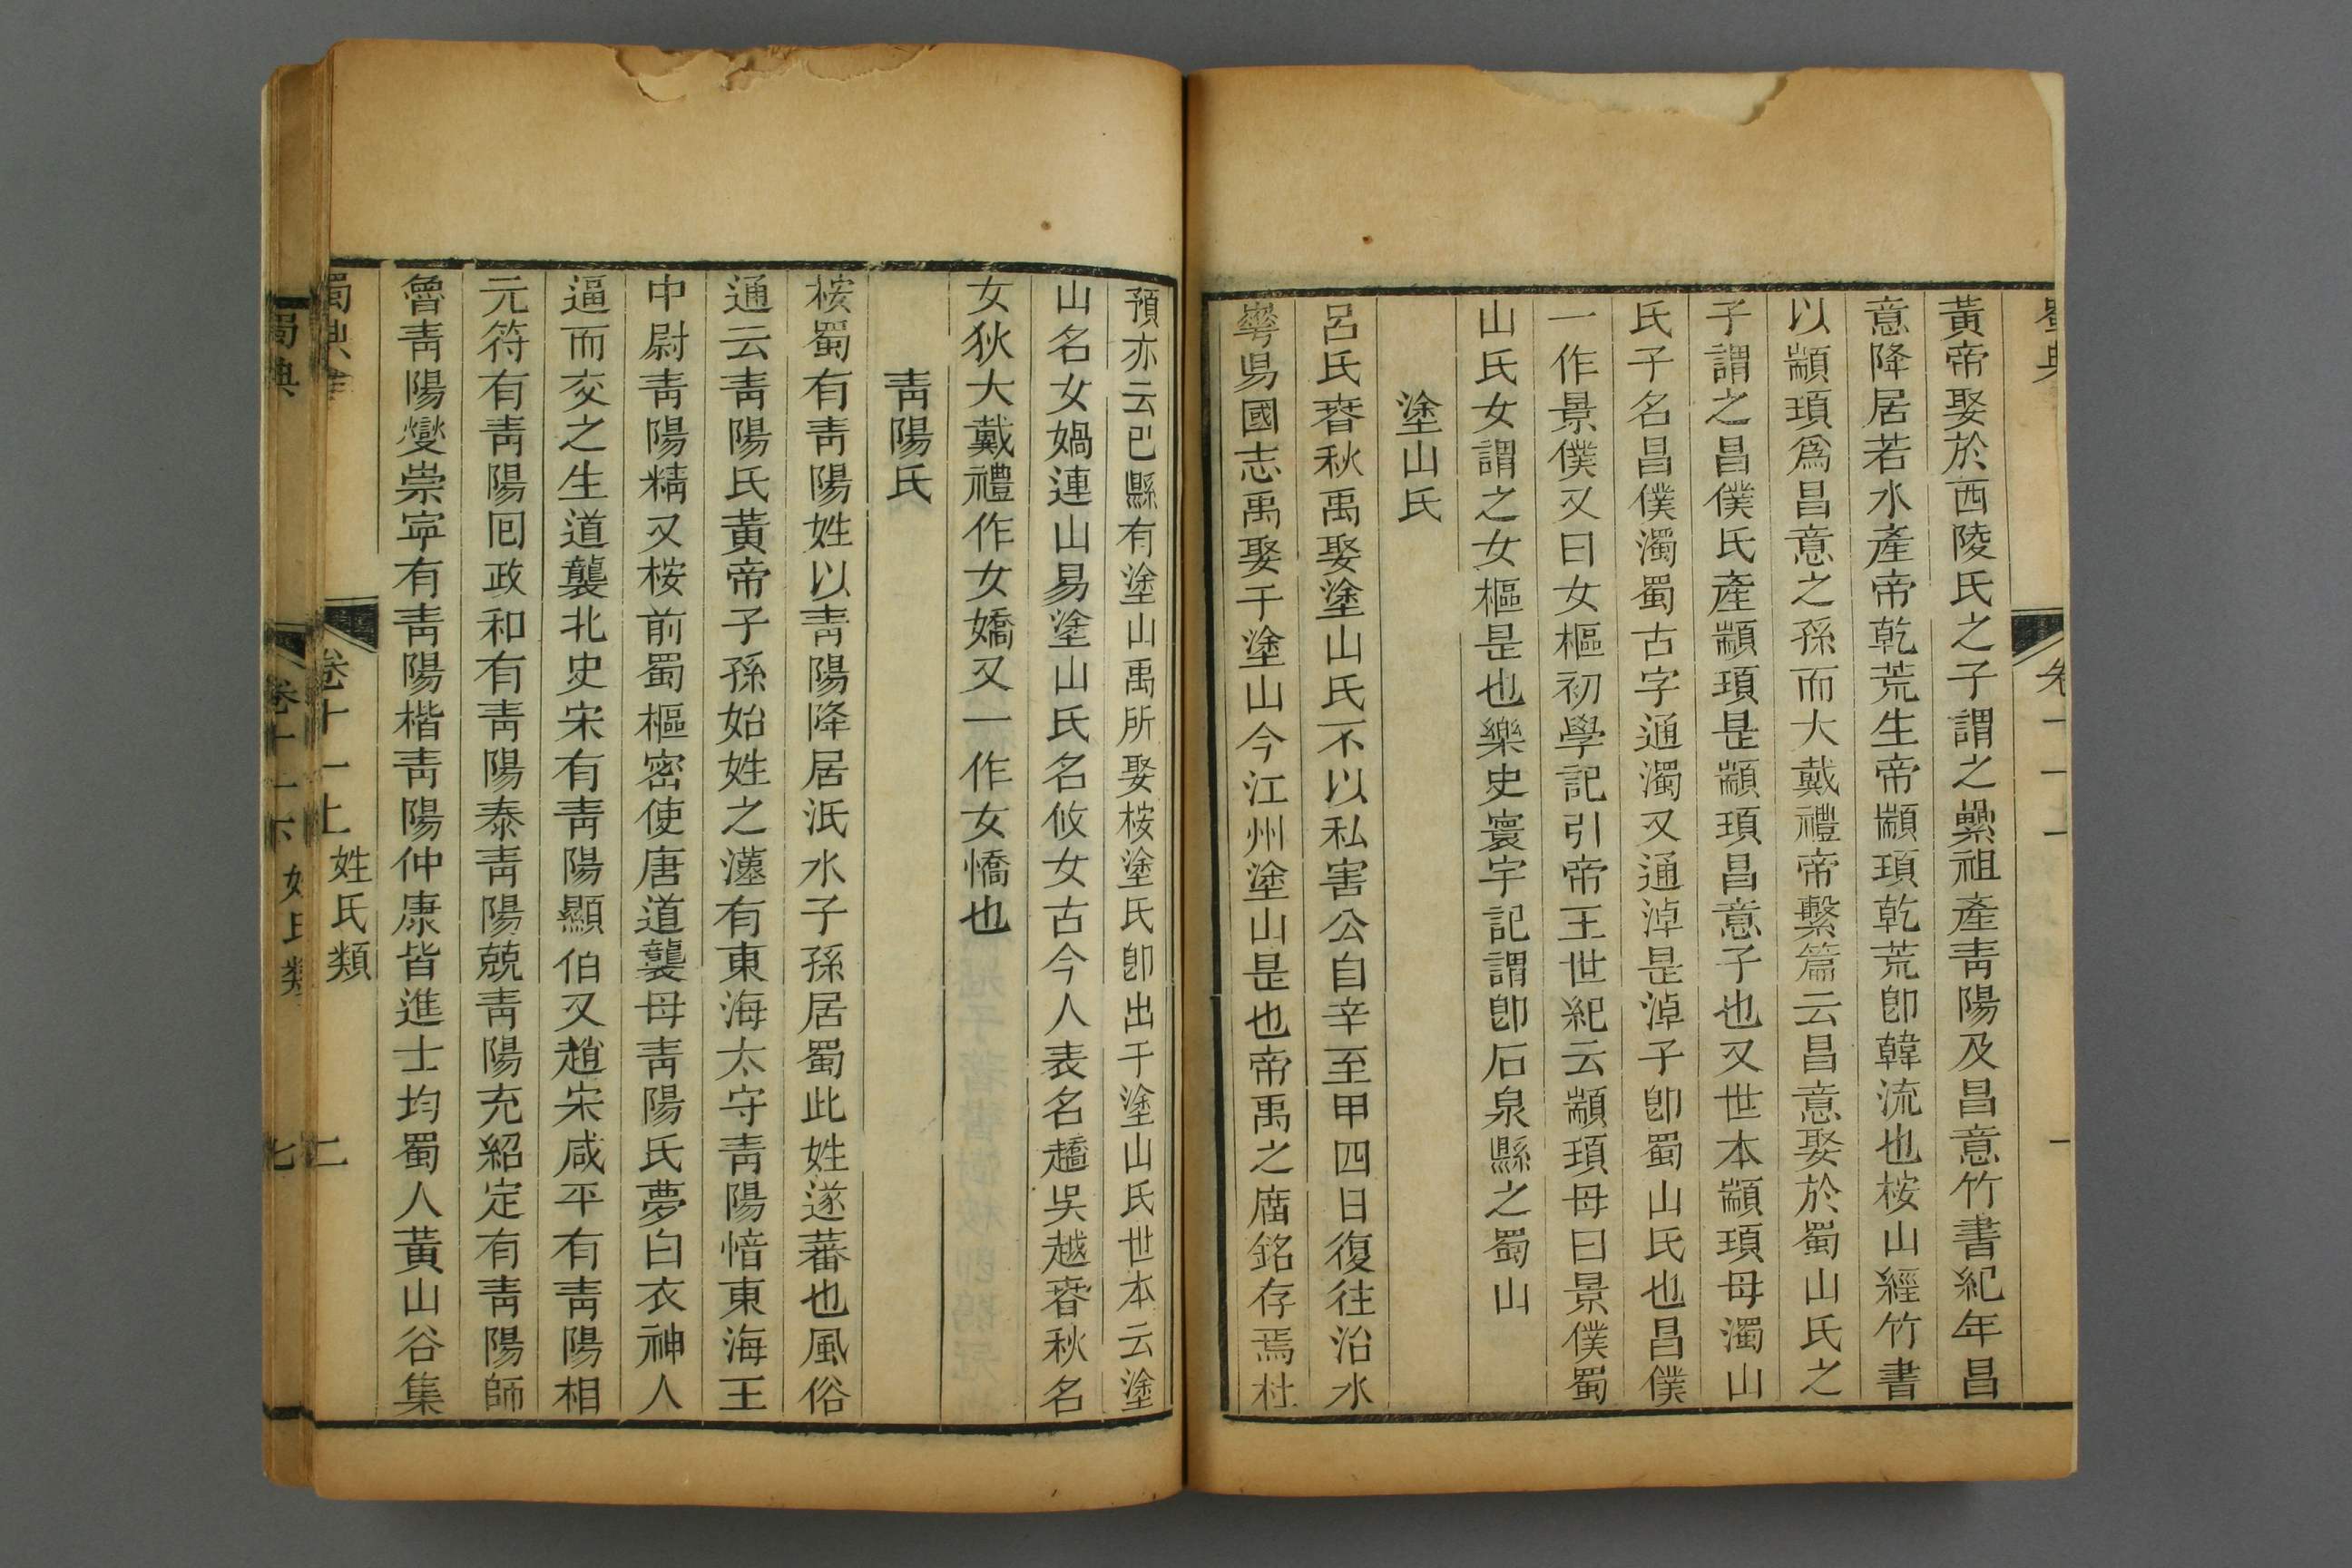 蜀典
卷十一上
一
黃帝娶於西陵氏之子謂之纍祖產靑陽及昌意竹書紀年昌
意降居若水產帝乾荒生帝顓頊乾荒卽韓流也桉山經竹書
以顓頊爲昌意之孫而大戴禮帝繫篇云昌意娶於蜀山氏之
子謂之昌僕氏產顓頊是顓頊昌意子也又世本顓頊母濁山
氏子名昌僕濁蜀古字通濁又通淖是淖子卽蜀山氏也昌僕
一作景僕又曰女樞初學記引帝王世紀云顓頊母曰景僕蜀
山氏女謂之女樞是也樂史寰宇記謂卽石泉縣之蜀山
塗山氏
呂氏春秋禹娶塗山氏不以私害公自辛至甲四日復往治水
華昜國志禹娶于塗山今江州塗山是也帝禹之庿銘存焉杜
預亦云巴縣有塗山禹所娶桉塗氏卽出于塗山氏世本云塗
山名女媧連山易塗山氏名攸女古今人表名趫吳越春秋名
女狄大戴禮作女嬌又一作女憍也
靑陽氏
桉蜀有靑陽姓以靑陽降居泜水子孫居蜀此姓遂蕃也風俗
通云靑陽氏黃帝子孫始姓之漢有東海太守靑陽愔東海王
中尉靑陽精又桉前蜀樞密使唐道襲母靑陽氏夢白衣神人
逼而交之生道襲北史宋有靑陽顯伯又趙宋咸平有靑陽相
元符有靑陽囘政和有靑陽泰靑陽兢靑陽充紹定有靑陽師
魯靑陽燮崇寍有靑陽楷靑陽仲康皆進士均蜀人黃山谷集
蜀典
卷十一上
姓氏類
二
蜀典
姓氏類
七